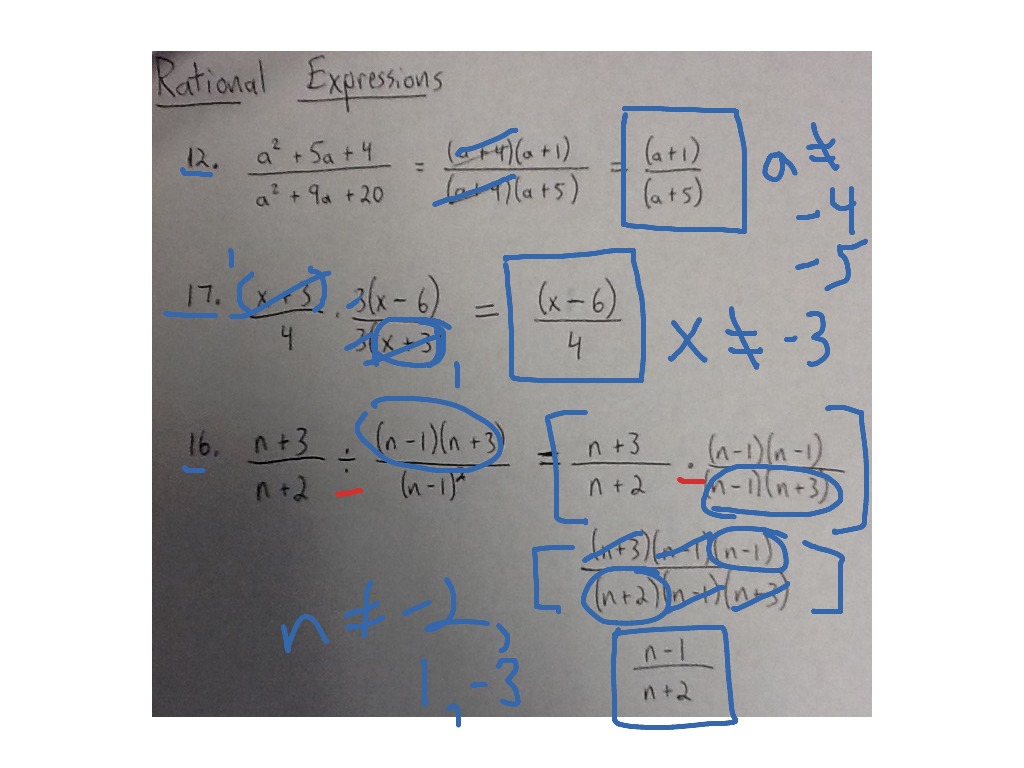 Rational Expressions
12. (a² + 5a + 4)/(a² + 9a + 20) = ((a + 4)(a + 1))/((a + 4)(a + 5)) = (a + 1)/(a + 5) a ≠ -4 -5
17. (x + 3)/4 · 3(x - 6)/3(x + 3) = (x - 6)/4 x ≠ -3
1 1
16. (n + 3)/(n + 2) ÷ ((n - 1)(n + 3))/(n - 1)² = [(n + 3)/(n + 2) · ((n - 1)(n - 1))/((n - 1)(n + 3))]
[((n + 3)(n - 1)(n - 1))/((n + 2)(n - 1)(n + 3))]
n ≠ -2, 1, -3
(n - 1)/(n + 2)